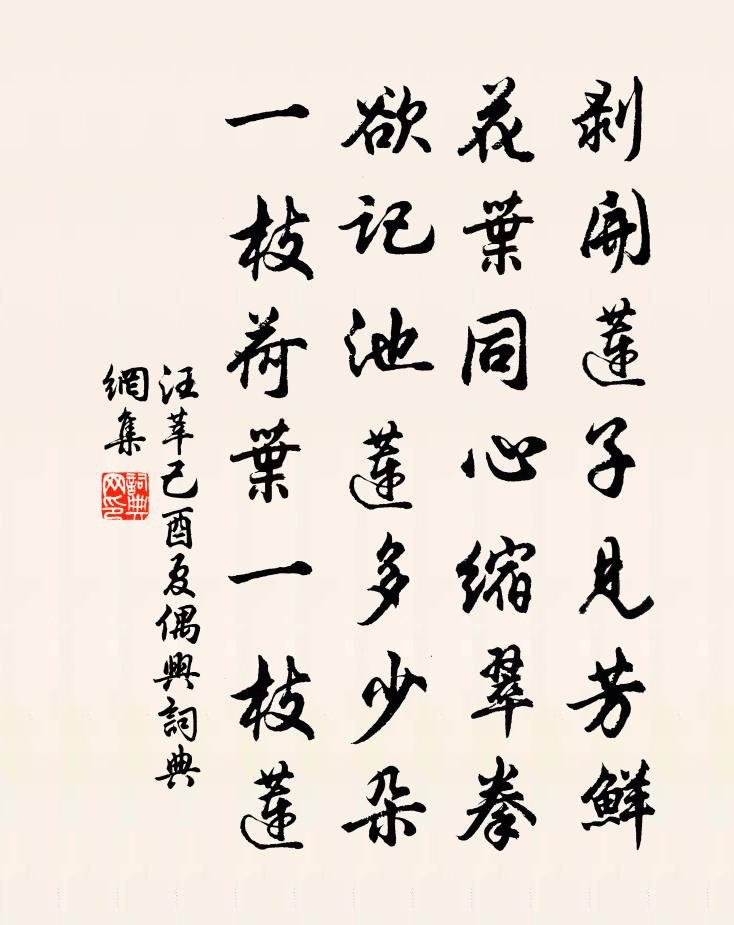 剥開蓮子見芳鮮
花葉同心縮翠拳
欲記池蓮多少朵
一枝荷葉一枝蓮
汪莘己酉夏偶興詞典
網集
詞典網印